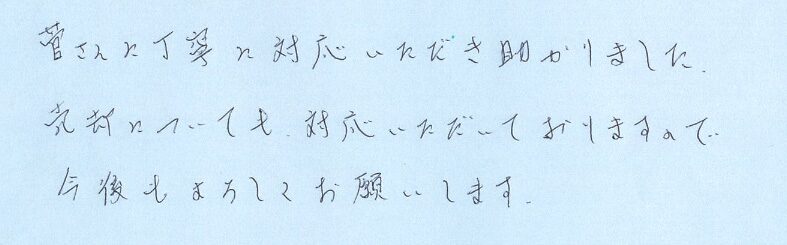 菅さんに丁寧に対応いただき助かりました.
売却についても.対応いただいておりますので
今後もよろしくお願いします.